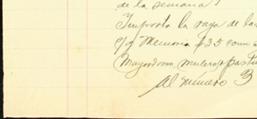 de la semana
Importa la raya de las
c/o Memoria #33 com
Mayordomo, mulero y
Al número 3